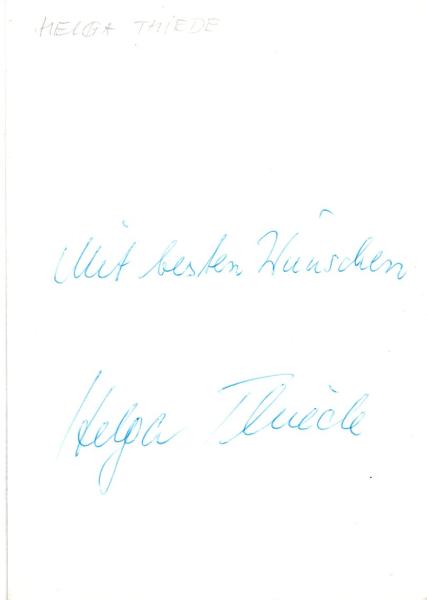 HELGA THIEDE
Mit besten Wünschen
Helga Thiede